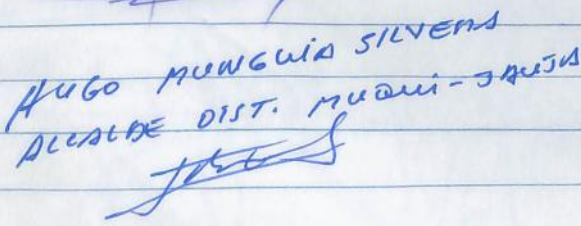 HUGO MUNGUIA SILVERA
ALCALDE DIST. MUQUI-JAUJA